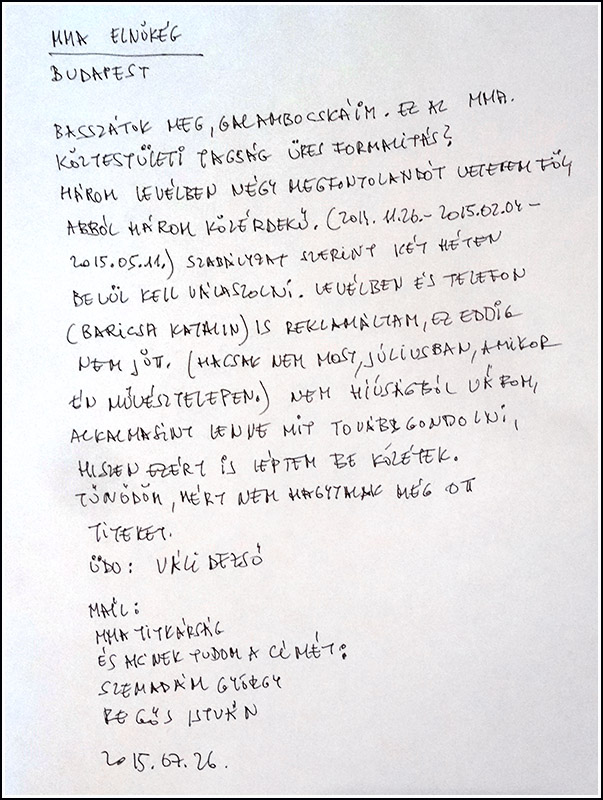 MMA ELNÖKÉG
BUDAPEST
BASSZÁTOK MEG, GALAMBOCSKÁIM. EZ AZ MMA.
KÖZTESTÜLETI TAGSÁG ÜRES FORMALITÁS?
HÁROM LEVÉLBEN NÉGY MEGFONTOLANDÓT VETETTEM FÖL,
ABBÓL HÁROM KÖZÉRDEKŰ. (2014.11.26.- 2015.02.04 -
2015.05.11.) SZABÁLYZAT SZERINT KÉT HÉTEN
BELÜL KELL VÁLASZOLNI. LEVÉLBEN ÉS TELEFON
(BARICSA KATALIN) IS REKLAMÁLTAM, EZ EDDIG
NEM JÖTT. (HACSAK NEM MOST, JÚLIUSBAN, AMIKOR
ÉN MŰVÉSZTELEPEN.) NEM HIÚSÁGBÓL VÁROM,
ALKALMASINT LENNE MIT TOVÁBBGONDOLNI,
HISZEN EZÉRT IS LÉPTEM BE KÖZÉTEK.
TŰNŐDÖM, MÉRT NEM HAGYTALAK MÉG OTT
TITEKET.
ÜDV: VÁLI DEZSŐ
MAIL:
MMA TITKÁRSÁG
ÉS AKINEK TUDOM A CÍMÉT:
SZEMADÁM GYÖRGY
REGŐS ISTVÁN
2015.07.26.